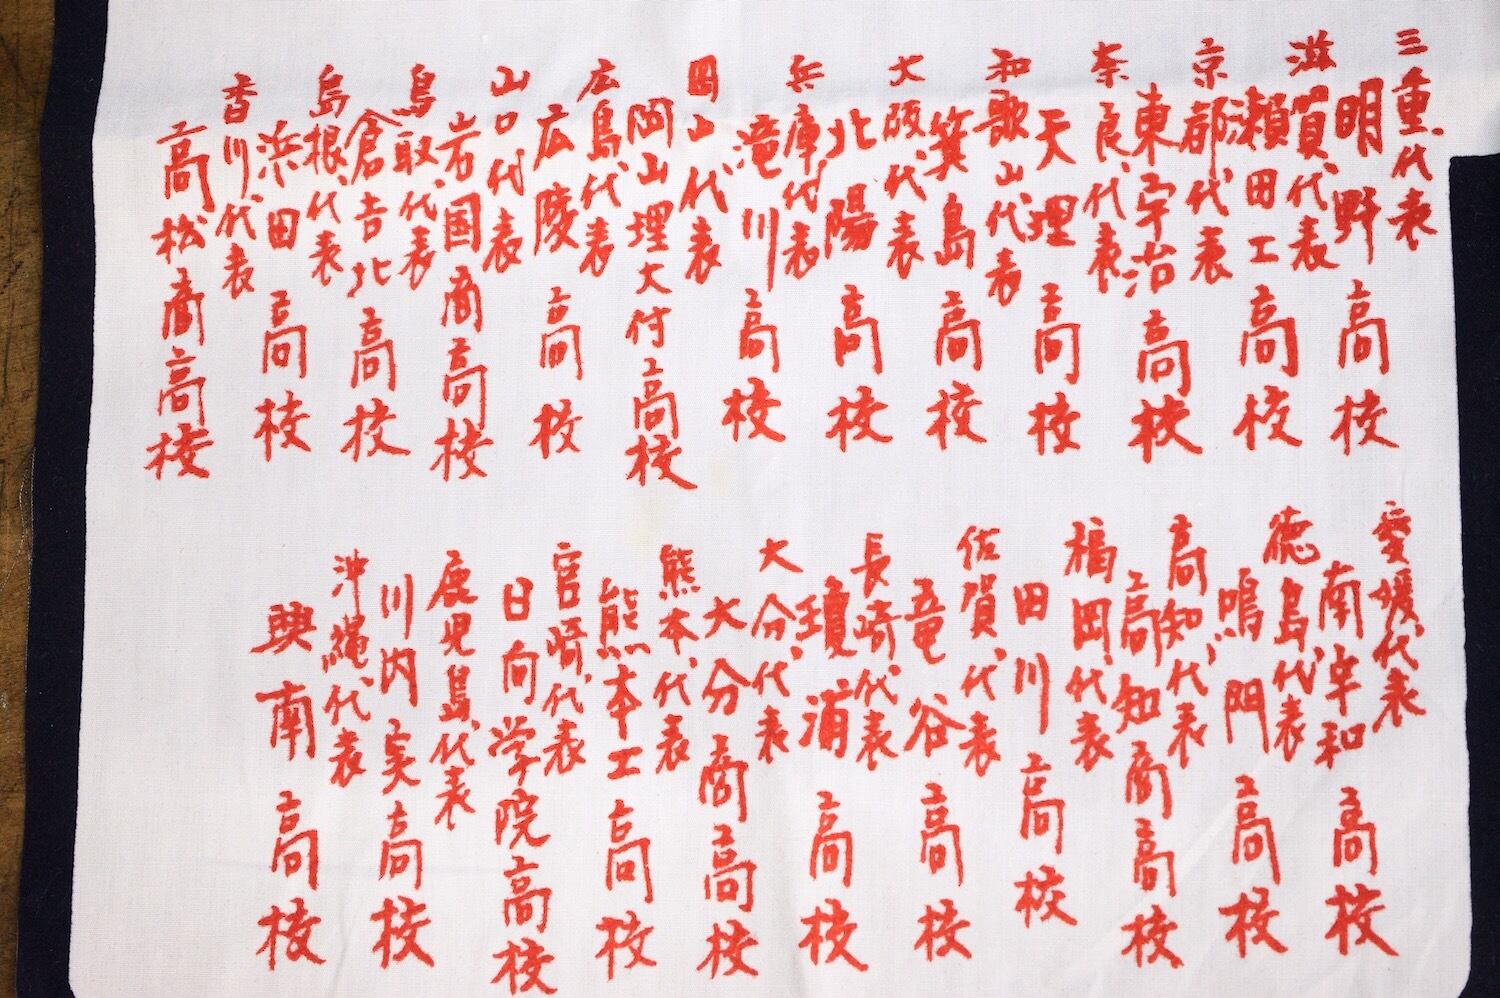 三重代表
明野高校
滋賀代表
瀬田工高校
京都代表
東宇治高校
奈良代表
天理高校
和歌山代表
箕島高校
大阪代表
北陽高校
兵庫代表
滝川高校
岡山代表
岡山理大付高校
広島代表
広陵高校
山口代表
岩国商高校
鳥取代表
倉吉北高校
島根代表
浜田高校
香川代表
高松商高校
愛媛代表
南宇和高校
徳島代表
鳴門高校
高知代表
高知商高校
福岡代表
田川高校
佐賀代表
竜谷高校
長崎代表
瓊浦高校
大分代表
大分商高校
熊本代表
熊本工高校
宮崎代表
日向学院高校
鹿児島代表
川内実高校
沖縄代表
興南高校